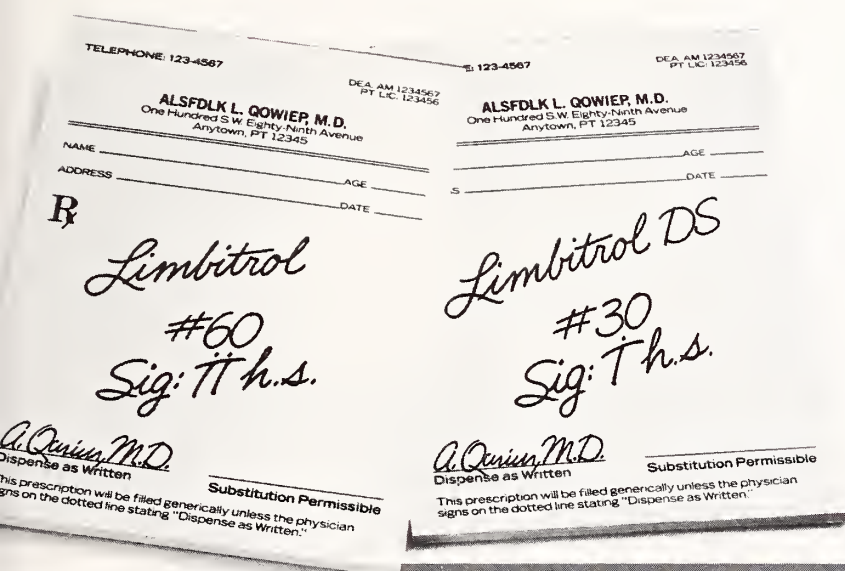 TELEPHONE: 123-4567
DEA. AM 1234567
PT LIC. 123456
ALSFDLK L. QOWIEP, M.D.
One Hundred S.W. Eighty-Ninth Avenue
Anytown, PT 12345
NAME AGE
ADDRESS DATE
Rx
Limbitrol
#60
Sig: ii h.s.
Dispense as Written
Substitution Permissible
This prescription will be filled generically unless the physician
signs on the dotted line stating "Dispense as Written."
E: 123-4567
DEA. AM 1234567
PT LIC. 123456
ALSFDLK L. QOWIEP, M.D.
One Hundred S.W. Eighty-Ninth Avenue
Anytown, PT 12345
AGE
S DATE
Limbitrol DS
#30
Sig: i h.s.
Dispense as Written
Substitution Permissible
This prescription will be filled generically unless the physician
signs on the dotted line stating "Dispense as Written."